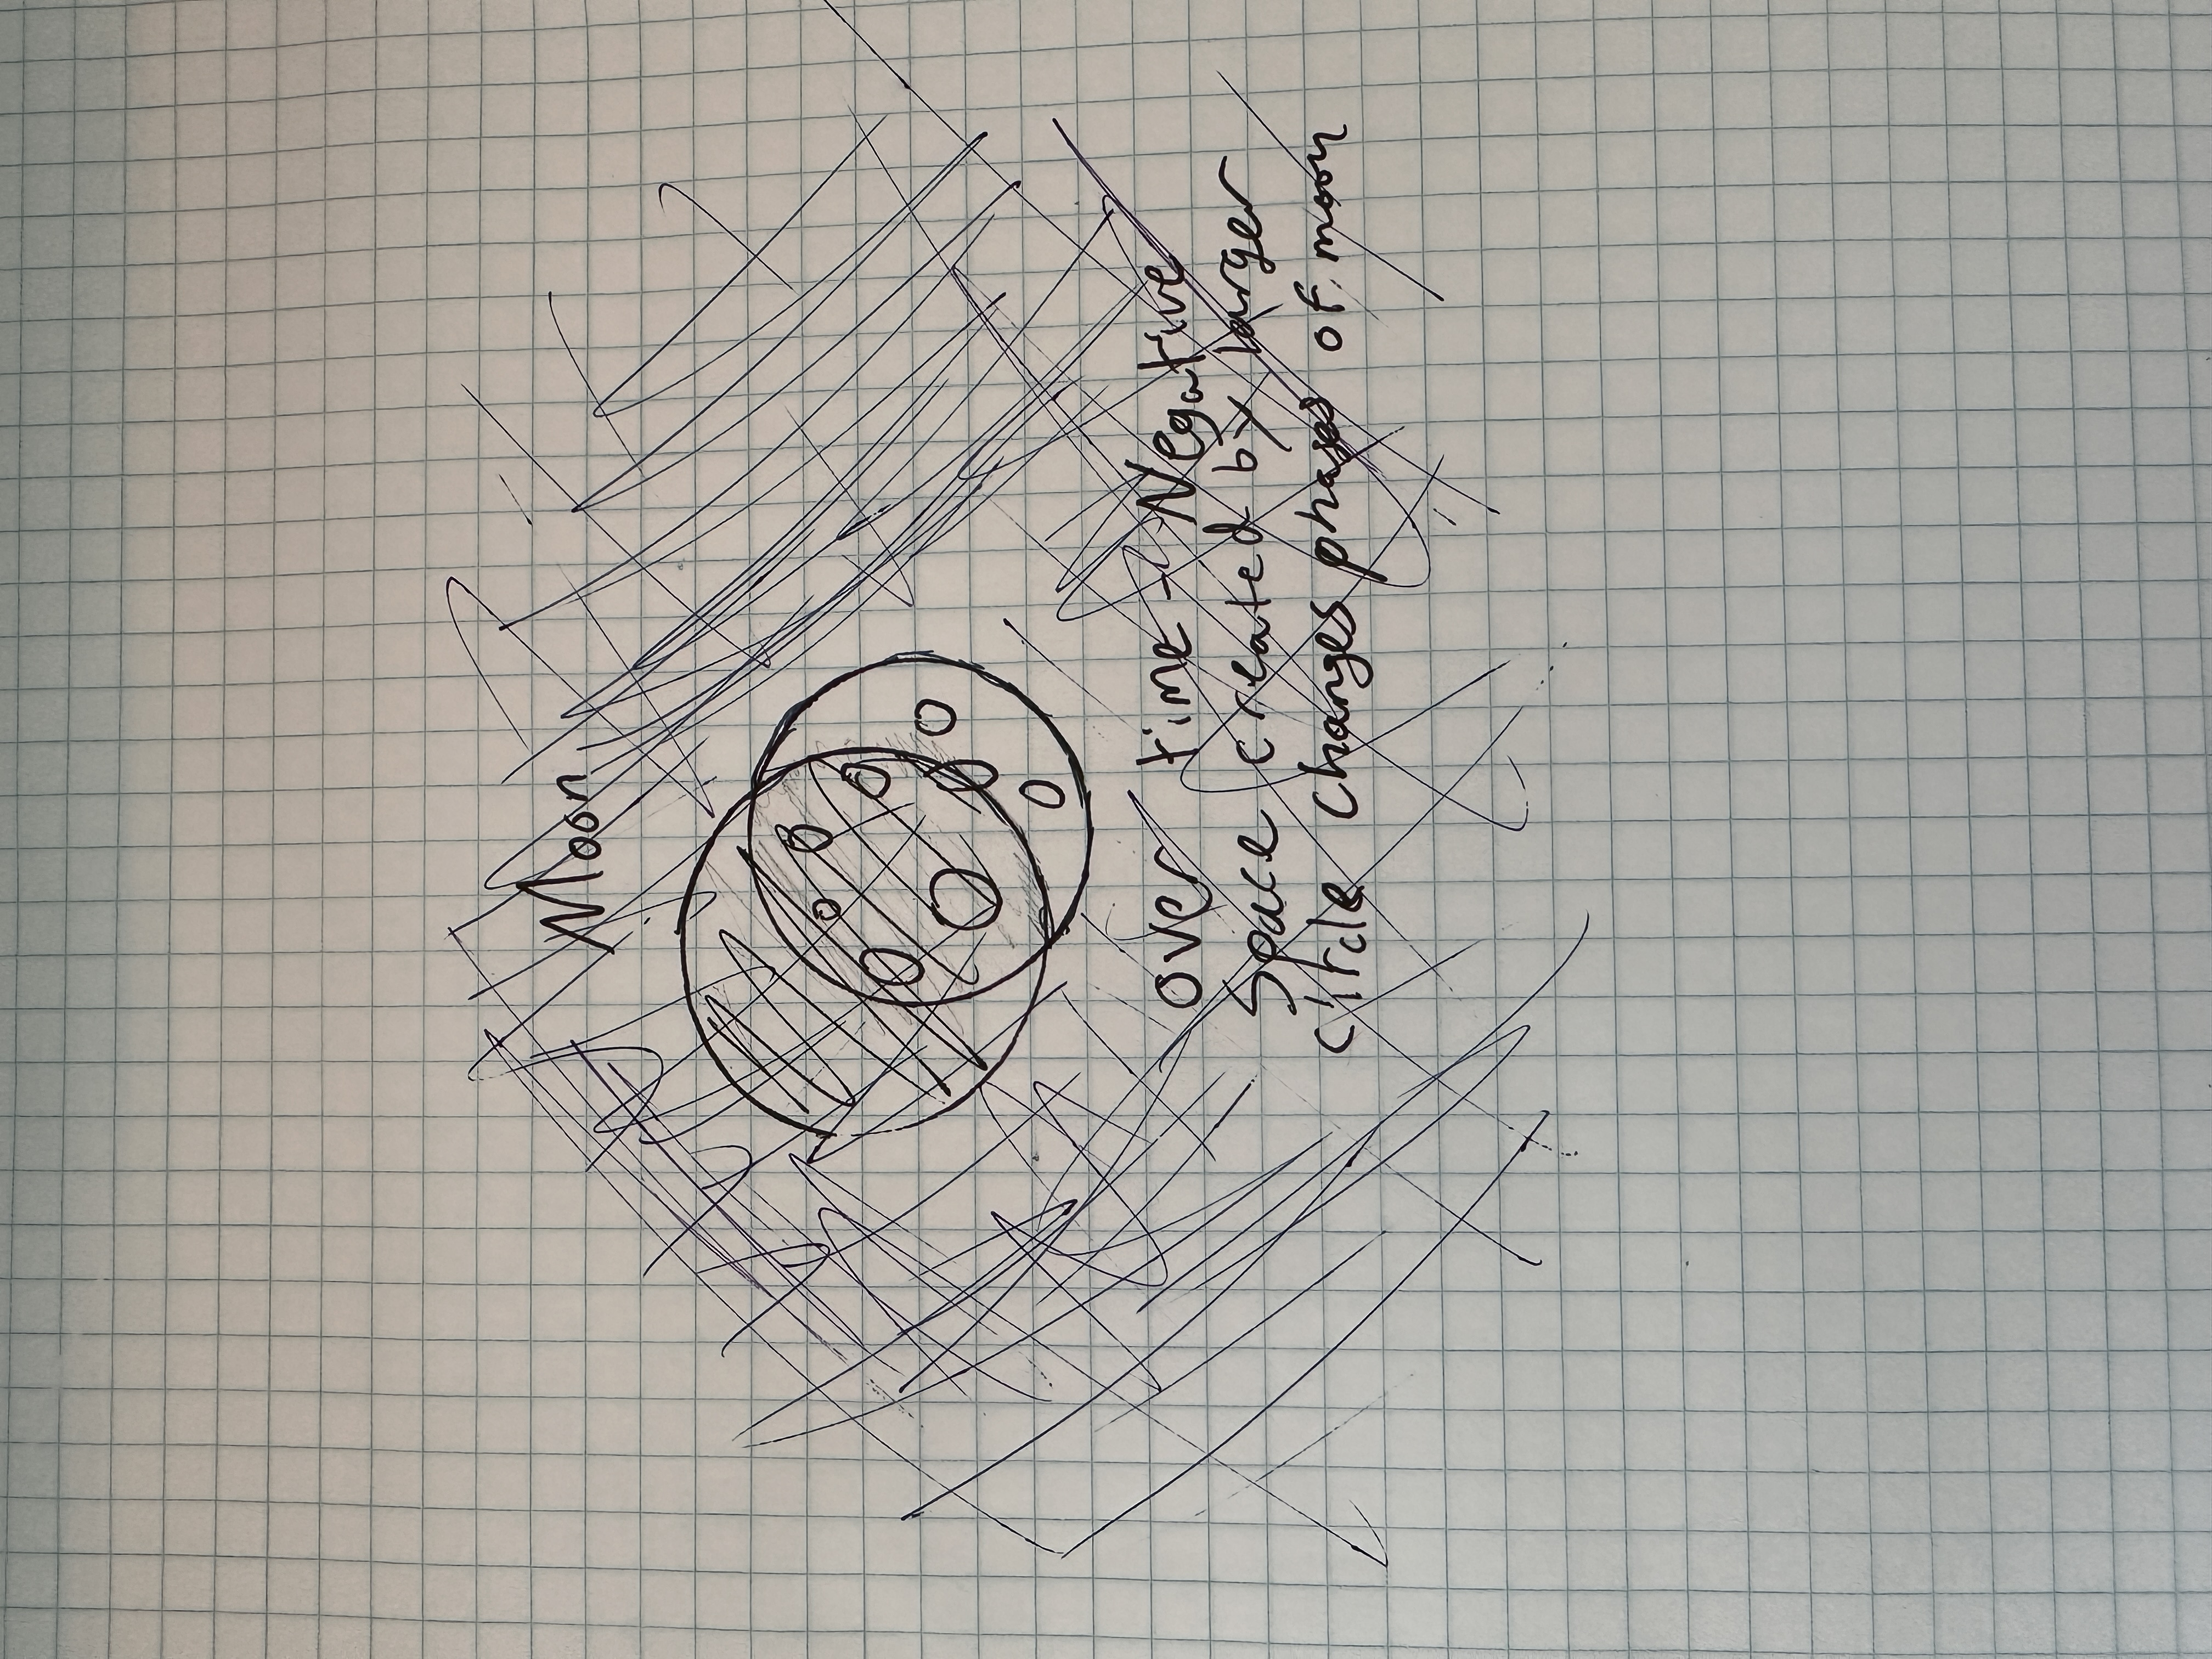 Moon
over time - Negative
Space created by larger
circle changes phases of moon